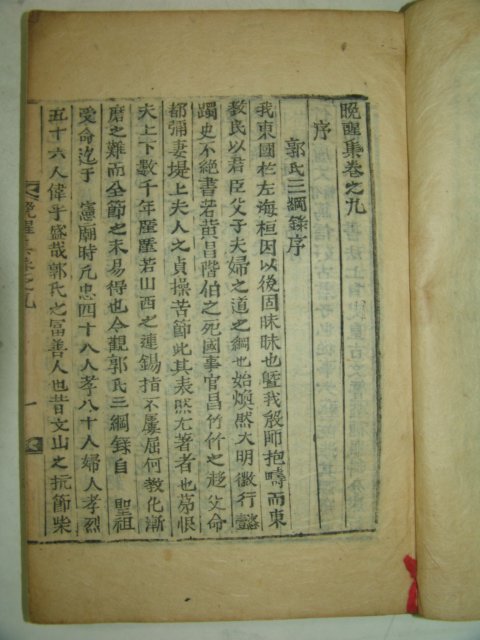 晚醒集卷之九
序
郭氏三綱錄序
我東國於左海桓因以後固昧昧也曁我殷師抱疇而東
敎民以君臣父子夫婦之道之綱也始煥然大明徽行懿
躅史不絶書若黃昌階伯之死國事官昌竹竹之趍父命
都彌妻堤上夫人之貞操苦節此其表然尤著者也第恨
夫上下數千年歷歷若山西之連錫指不屢屈何敎化漸
磨之難而全節之未易得也今觀郭氏三綱錄自 聖祖
受命迄于 憲廟時凡忠四十八人孝八十人婦人孝烈
五十六人偉乎盛哉郭氏之富善人也昔文山之抗節柴
晚醒集卷之九 一